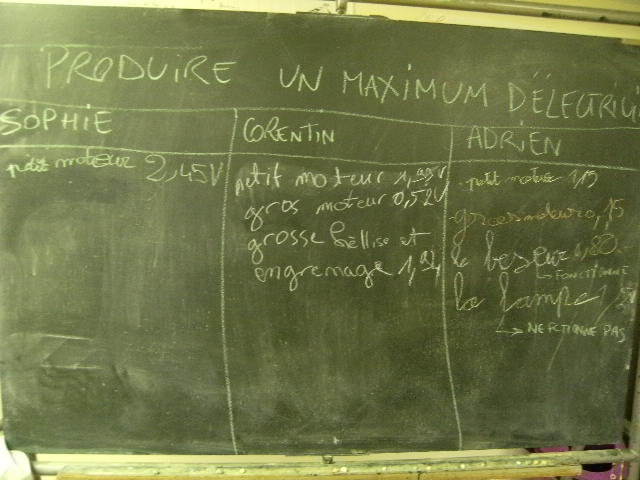 PRODUIRE UN MAXIMUM D'ÉLECTRICI
SOPHIE
petit moteur 2,45V
CORENTIN
petit moteur 1,99V
gros moteur 0,52V
grosse hèllise et
engrenage 1,92,
ADRIEN
petit moteur 1,15
gros moteur 0,15
le beseur 1,80
↳ FONCTIONNE
la lampe 1,
↳ NE FCTIONNE PAS